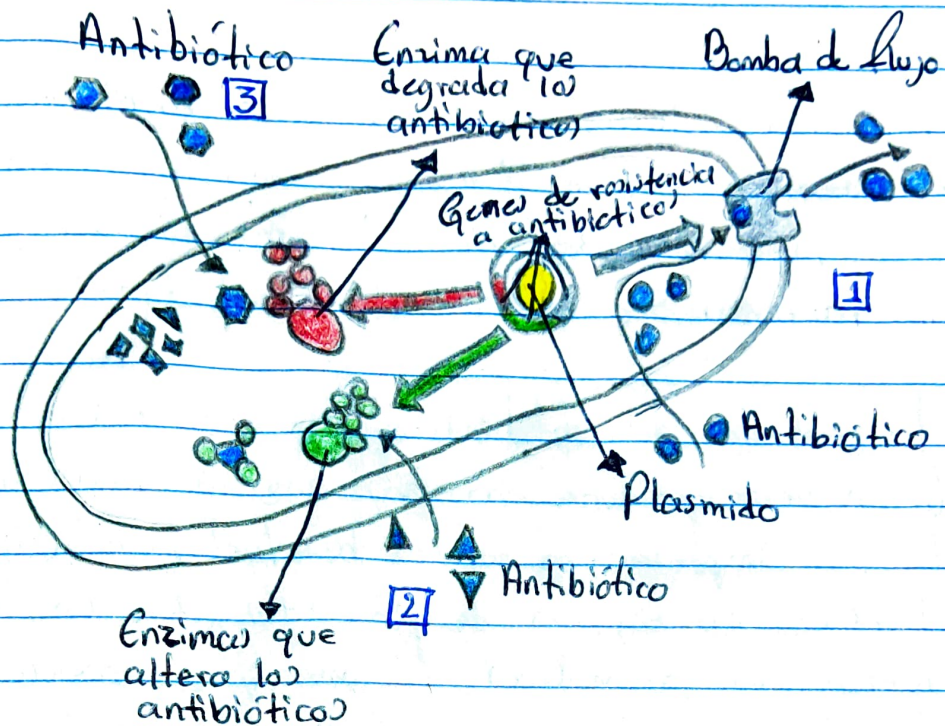 Antibiótico
3
Enzima que
degrada los
antibioticos
Bomba de flujo
Genes de resistencia
a antibioticos
1
Antibiótico
Plasmido
Antibiótico
2
Enzimas que
altera los
antibióticos